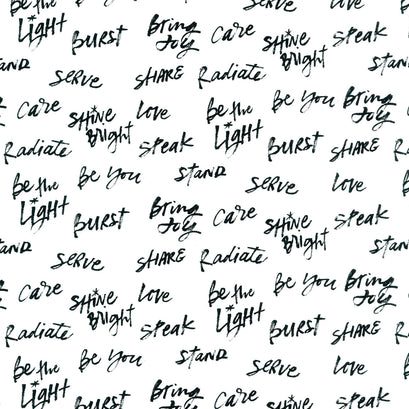 Be the Serve Love
Light Burst Bring Joy Care Shine Bright Speak
Stand Serve Share Radiate Stand
Care Shine Bright Love Be the Light Be You Bring Joy
Radiate Speak Burst Share
Be the Light Be You Stand Serve Love
Burst Bring Joy Care Shine Bright Speak
Stand Serve Share Radiate Stand
Care Shine Bright Love Be the Light Be You Bring Joy
Radiate Speak Burst Share
Be the Light Be You Stand Serve Love
Burst Bring Joy Care Shine Speak